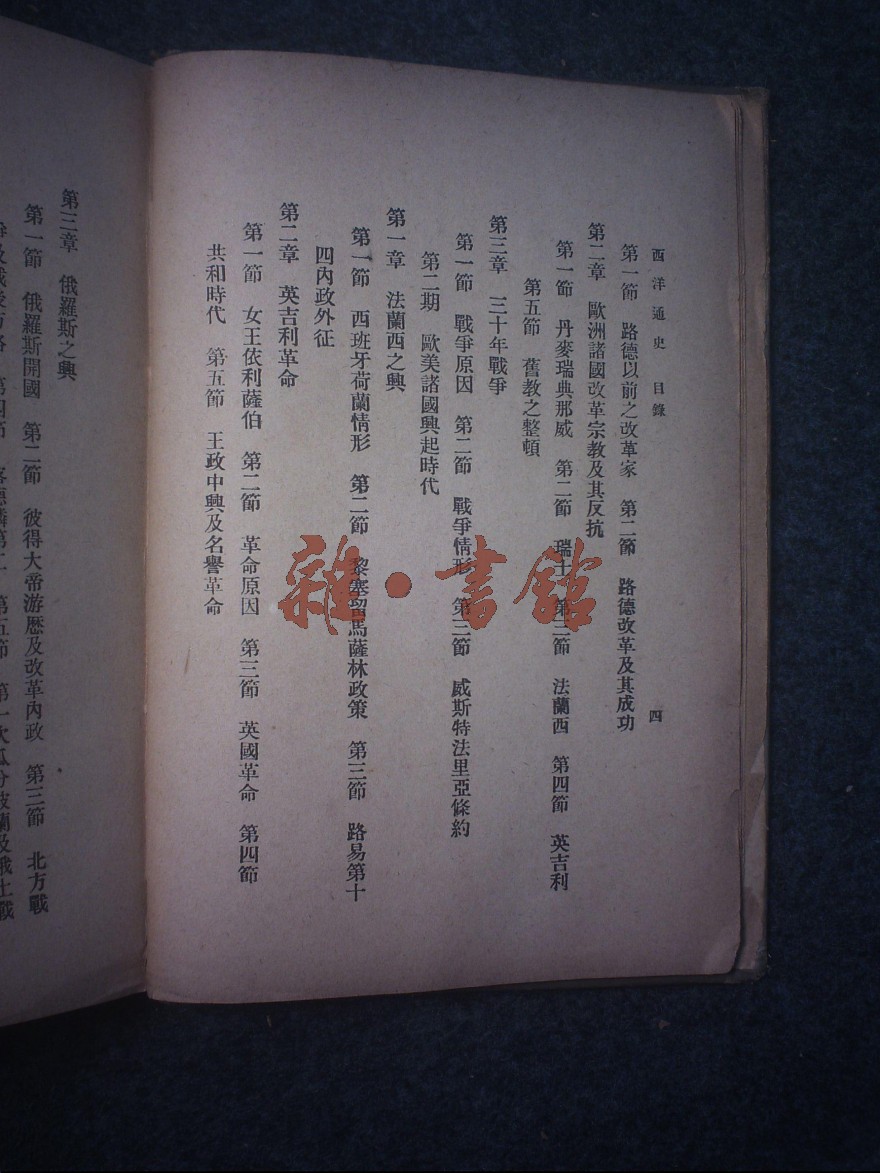 西洋通史 目錄 四
第一節 路德以前之改革家 第二節 路德改革及其成功
第二章 歐洲諸國改革宗教及其反抗
第一節 丹麥瑞典那威 第二節 瑞士 第三節 法蘭西 第四節 英吉利
第五節 舊教之整頓
第三章 三十年戰爭
第一節 戰爭原因 第二節 戰爭情形 第三節 威斯特法里亞條約
第二期 歐美諸國興起時代
第一章 法蘭西之興
第一節 西班牙荷蘭情形 第二節 黎塞留馬薩林政策 第三節 路易第十
四內政外征
第二章 英吉利革命
第一節 女王依利薩伯 第二節 革命原因 第三節 英國革命 第四節
共和時代 第五節 王政中興及名譽革命
第三章 俄羅斯之興
第一節 俄羅斯開國 第二節 彼得大帝游歷及改革內政 第三節 北方戰
第四節 第五節 第一次瓜分波蘭及俄土戰
雜·書館